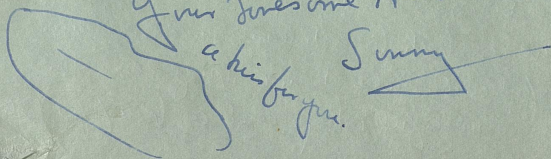 Your lonesome
Sonny
a kiss for you.